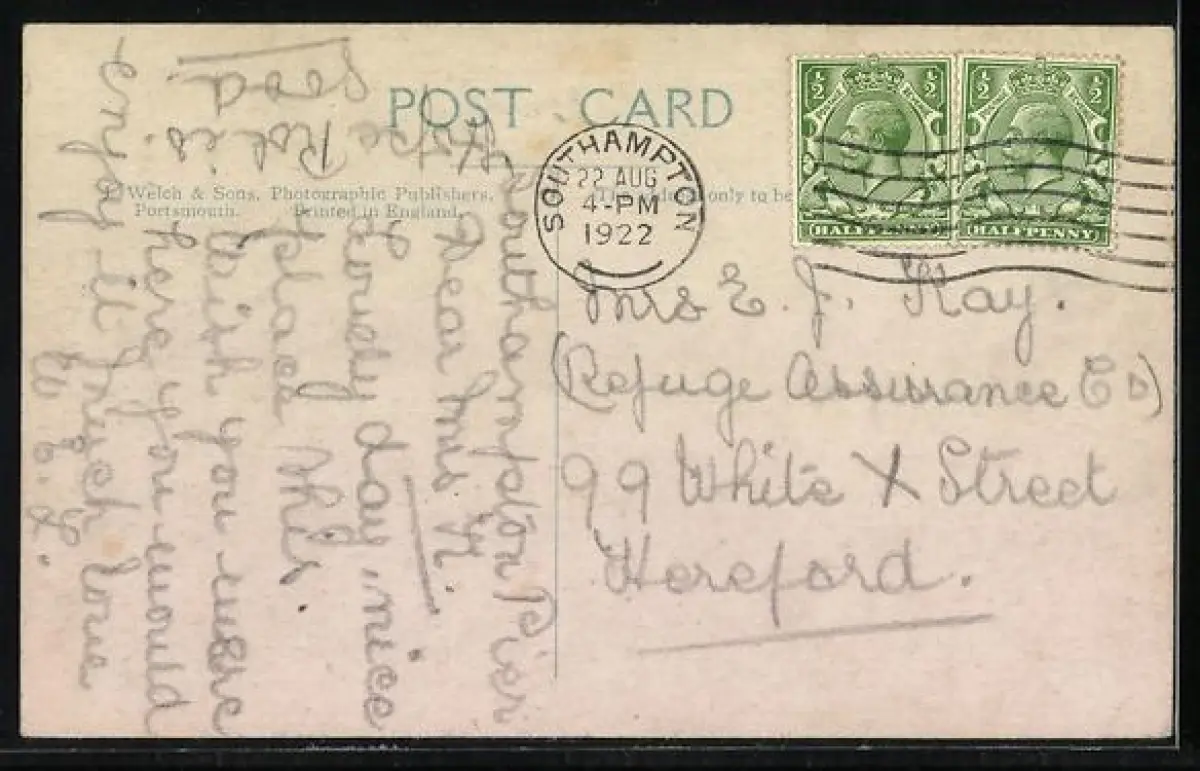 POST CARD
Welch & Sons, Photographic Publishers,
Portsmouth. Printed in England.
only to be
SOUTHAMPTON
22 AUG
4-PM
1922
½ ½
HALFPENNY
½ ½
HALFPENNY
Mrs E. J. Kay.
(Refuge Assurance Co)
99 White X Street
Hereford.
Southampton Pier
Dear Mrs K.
Lovely day, nice
place this.
wish you were
here you would
enjoy it much love
is
good.